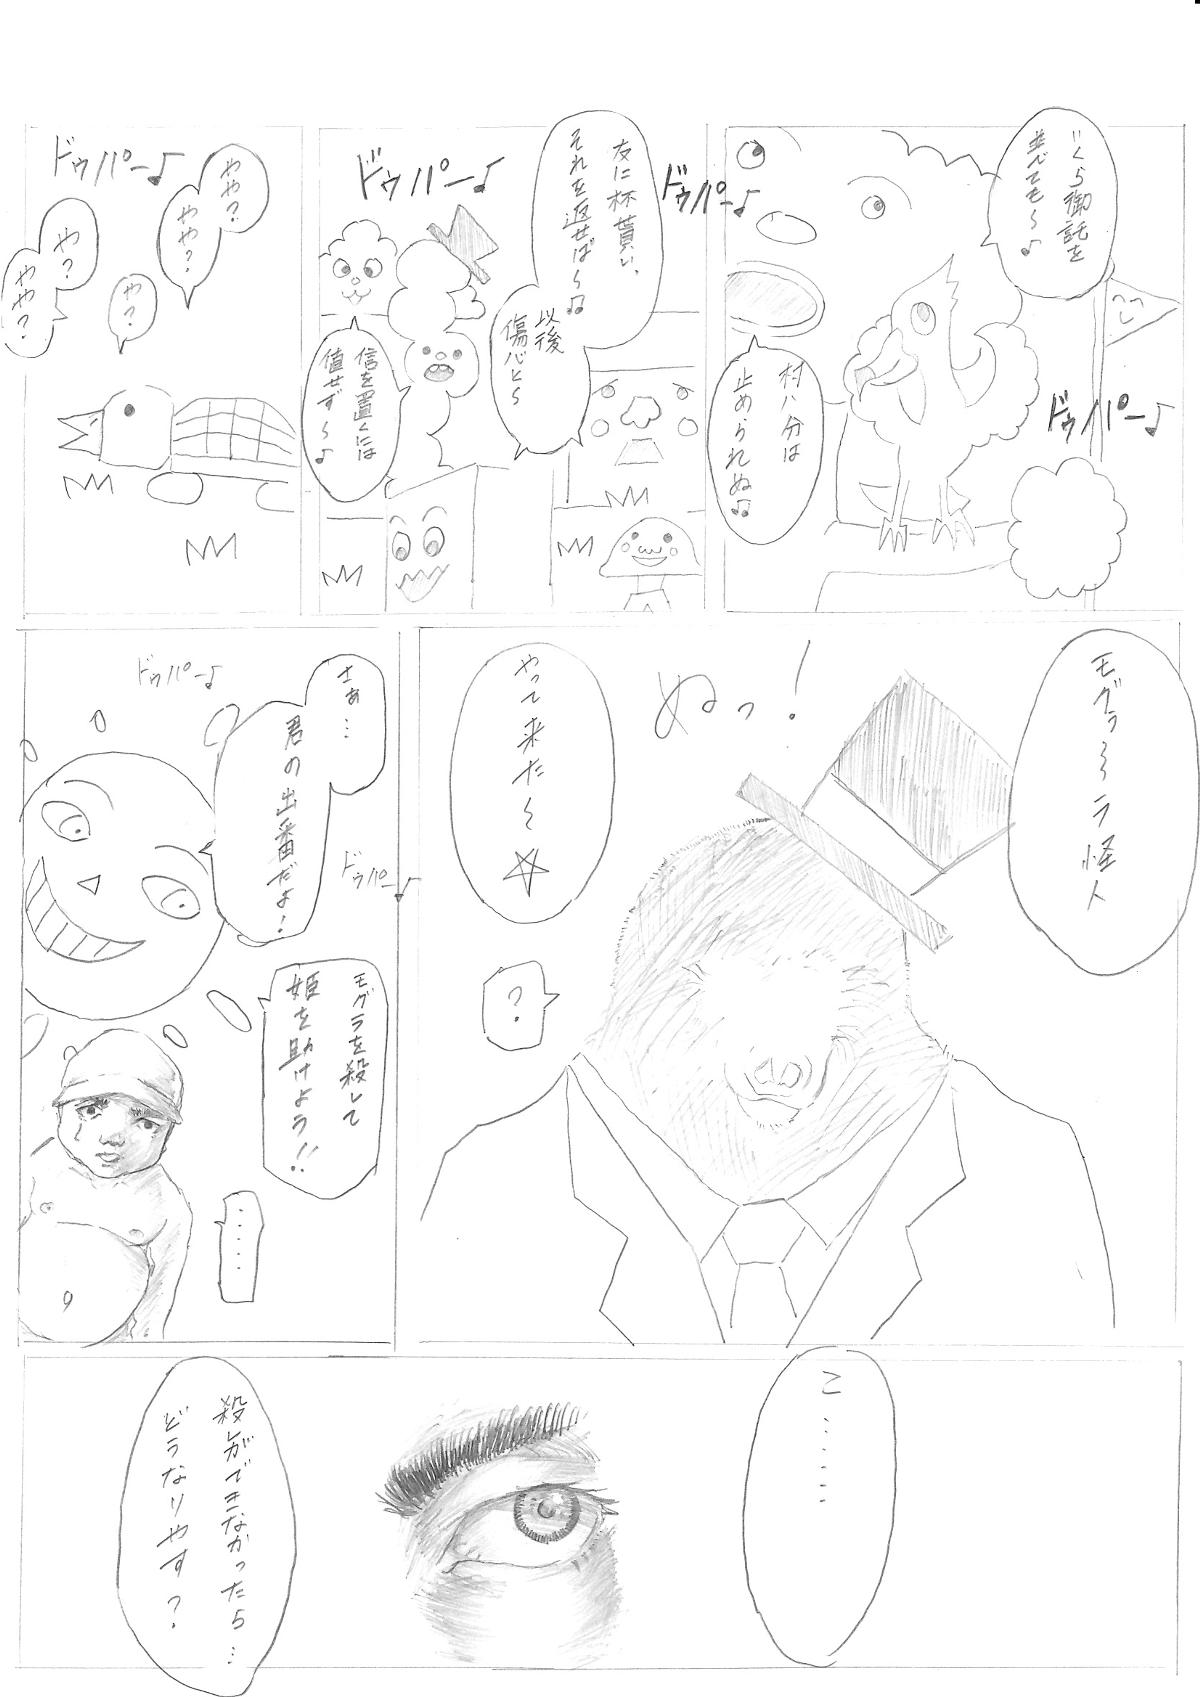 いくら御託を
並べても〜♪
村八分は
止められぬ♫
ドゥパー♪
ドゥパー♪
友に杯貰い、
それを返せば〜♫
以後
傷心と〜
信を置くには
値せず〜♪
ドゥパー♪
ドゥパー♪
やや?
やや?
や?
や?
やや?
モグラ
怪人
ぬっ!
やって来た〜☆
?
さぁ…
君の出番だよ!
ドゥパー♪
ドゥパー♪
モグラを殺して
姫を助けよう!!
……
こ……
殺しができなかったら…
どうなりやす?